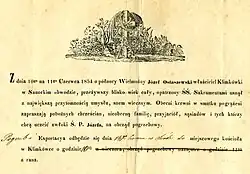 Z dnia 10go na 11go Czerwca 1854 o północy Wielmożny Józef Ostaszewski właściciel Klimkówki
w Sanockim obwodzie, przeżywszy blisko wiek cały, opatrzony ŚŚ. Sakramentami usnął
z największą przytomnością umysłu, snem wiecznym. Obecni krewni w smutku pogrążeni
zapraszają pobożnych chrześcian, mieszkańców, familię, przyjaciół, sąsiadów i tych którzy
chcą uczcić zwłoki Ś. P. Józefa, na obrzęd pogrzebowy.
Exportacya odbędzie się dnia do miejscowego kościoła
w Klimkówce o godzinie obrzęd pogrzebowy o godzinie
z rana.